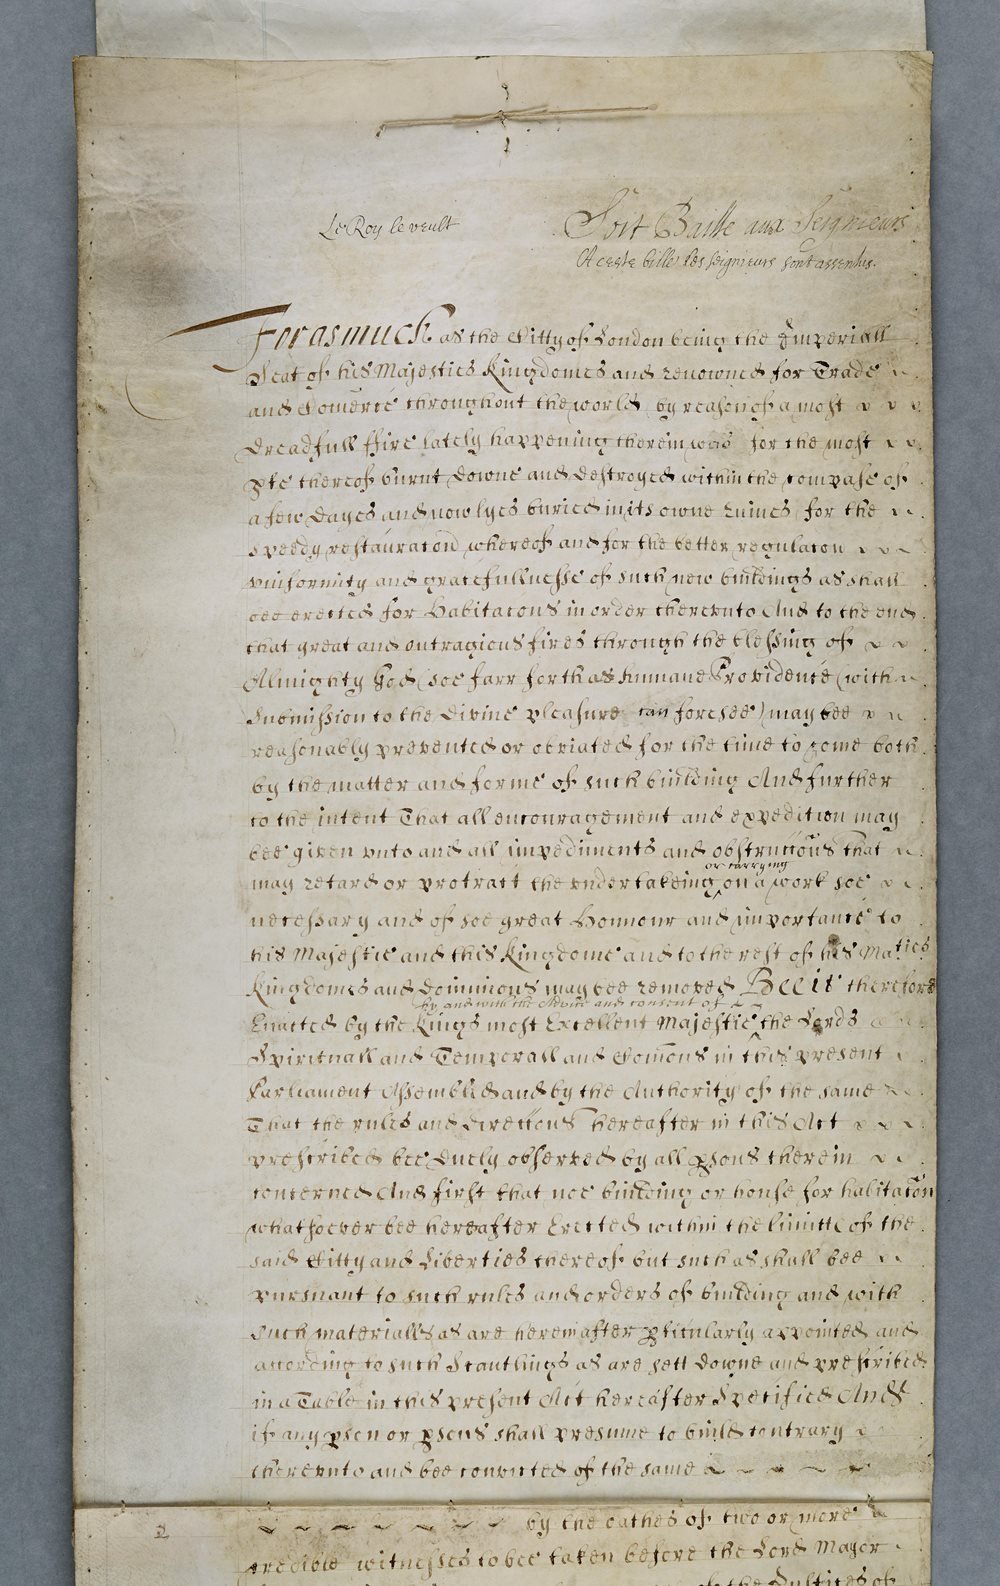 Le Roy le veult
Soit Baille aux Seigneurs
A ceste bille les seigneurs sont assentus.
Forasmuch as the Citty of London being the Imperiall
Seat of his Majesties Kingdomes and renowned for Trade
and Com̄erce throughout the world by reason of a most
dreadfull ffire lately happening therein was for the most
pte thereof burnt downe and destroyed within the compase of
a few dayes and now lyes buried in its owne ruines for the
speedy restauracon whereof and for the better regulacon
vniformity and gracefullnesse of such new buildings as shall
bee erected for Habitacons in order therevnto And to the end
that great and outragious fires through the blessing of
Almighty God (soe farr forth as humane Providence (with
submission to the divine pleasure can foresee) may bee
reasonably prevented or obviated for the time to come both
by the matter and forme of such building And further
to the intent That all encouragement and expedition may
bee given vnto and all impediments and obstruccons that
or carrying
may retard or protract the undertakeing on a work soe
necessary and of soe great Honnour and importance to
his Majestie and this Kingdome and to the rest of his Maties
Kingdomes and dominions may bee removed Bee it therefore
by and with the Advice and consent of
Enacted by the Kings most Excellent Majestie the Lords
Spirituall and Temporall and Com̄ons in this present
Parliament Assembled and by the Authority of the same
That the rules and direccons hereafter in this Act
prescribed bee duely observed by all psons therein
concerned And first that noe building or house for habitacon
whatsoever bee hereafter Erected within the limitts of the
said Citty and Liberties thereof but such as shall bee
pursuant to such rules and orders of building and with
such materialls as are herein after pticularly appointed and
according to such Scantlings as are sett downe and prescribed
in a Table in this present Act hereafter Specified And
if any pson or psons shall presume to build contrary
therevnto and bee convicted of the same
2
by the oathes of two or more
credible witnesses to bee taken before the Lord Mayor
of the Justices of